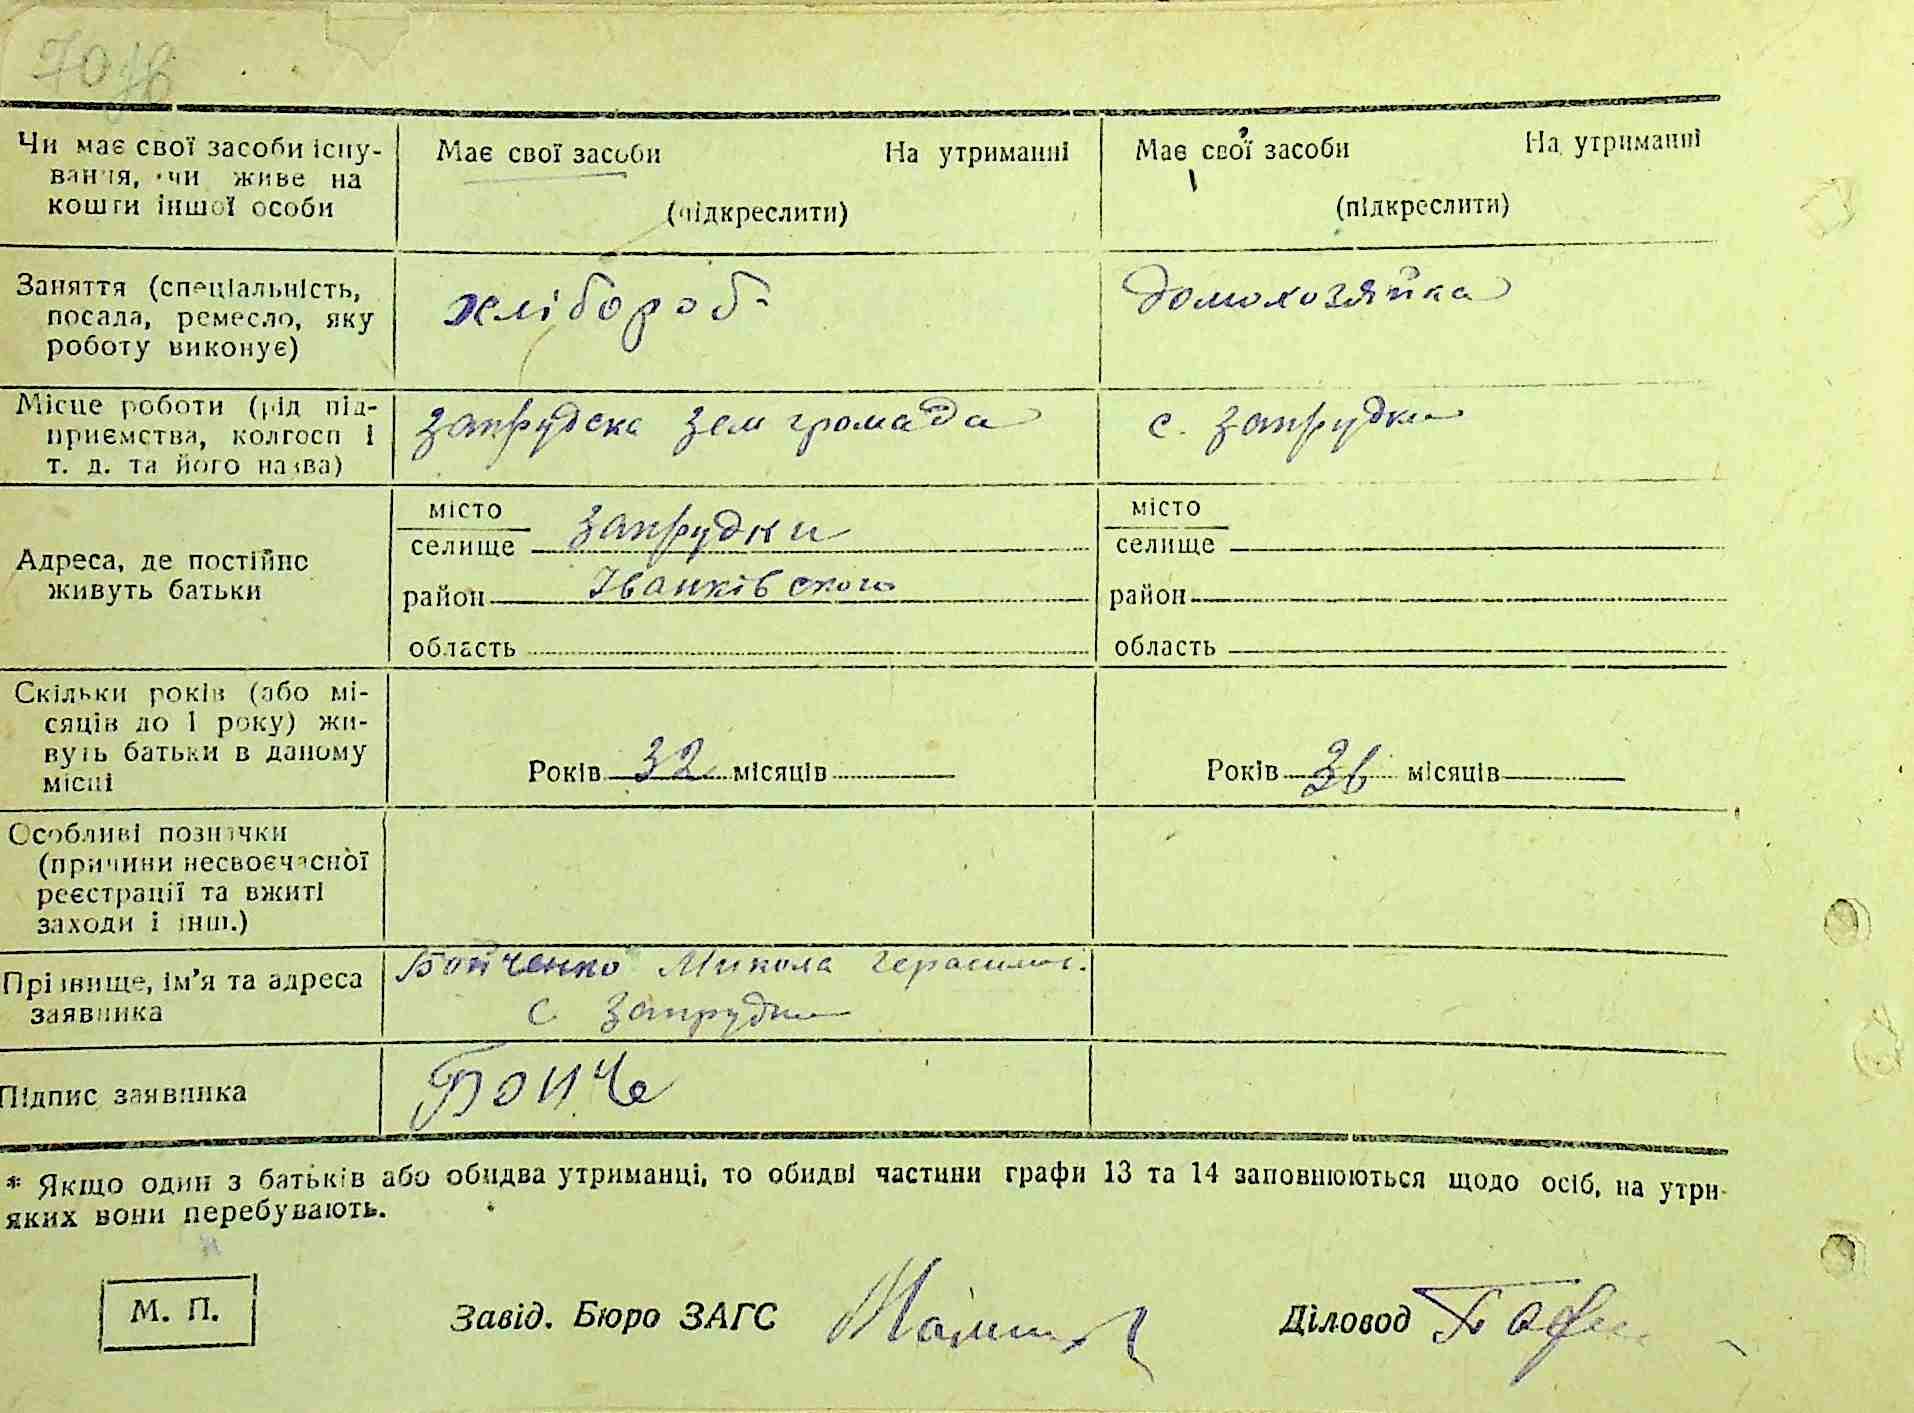 Чи має свої засоби існу-
вання, чи живе на
кошти іншої особи
Має свої засоби На утриманні
(підкреслити)
Має свої засоби На утриманні
(підкреслити)
Заняття (спеціальність,
посада, ремесло, яку
роботу виконує)
хлібороб
домохозяйка
Місце роботи (рід під-
приємства, колгосп і
т. д. та його назва)
Запрудска зем громада
с. Запрудки
Адреса, де постійно
живуть батьки
місто
селище Запрудки
район Іванківского
область
місто
селище
район
область
Скільки років (або мі-
сяців до 1 року) жи-
вуть батьки в даному
місці
Років 32 місяців
Років 36 місяців
Особливі позначки
(причини несвоєчасної
реєстрації та вжиті
заходи і інш.)
Прізвище, ім'я та адреса
заявника
Бойченко Микола Герасимов.
с Запрудки
Підпис заявника
Бойче
* Якщо один з батьків або обидва утриманці, то обидві частини графи 13 та 14 заповнюються щодо осіб, на утри-
яких вони перебувають.
М. П.
Завід. Бюро ЗАГС
Діловод